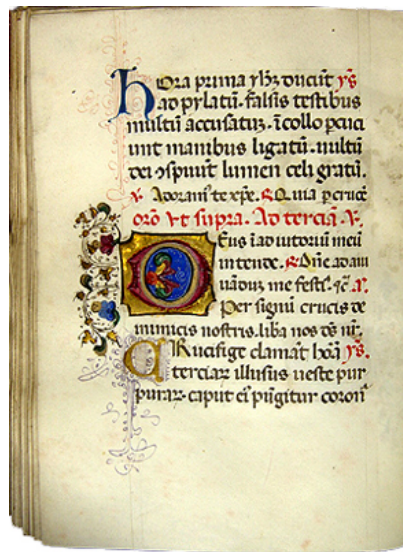 hORa prima yhẕ ducūt ys̄
ad pylatū. falsis testibus
multū accusatuȝ. ī collo ꝑcuci
unt manibus ligatū. uultū
dei ↄspuūt lumen celi gratū.
℣. Adoram᷒ te xp̄e. ℟. Quia ꝑ crucē
orō vt supra. Ad terciā. ℣.
DEus ī adiutoriū meū
intende. ℟. Dn̄e ad
me festī. a͞.
Per signū crucis de
inimicis nostris. liba nos ds̄ nr̄.
CRucifige clamāt hoā ys̄.
terciaꝝ illusus ueste pur
puraꝝ. caput ei᷒ pūgitur coron̄